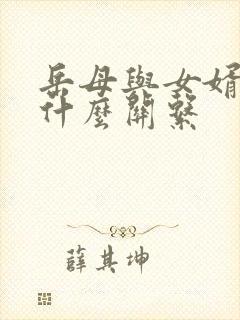 岳母與女婿
什麼關繫
薛其坤